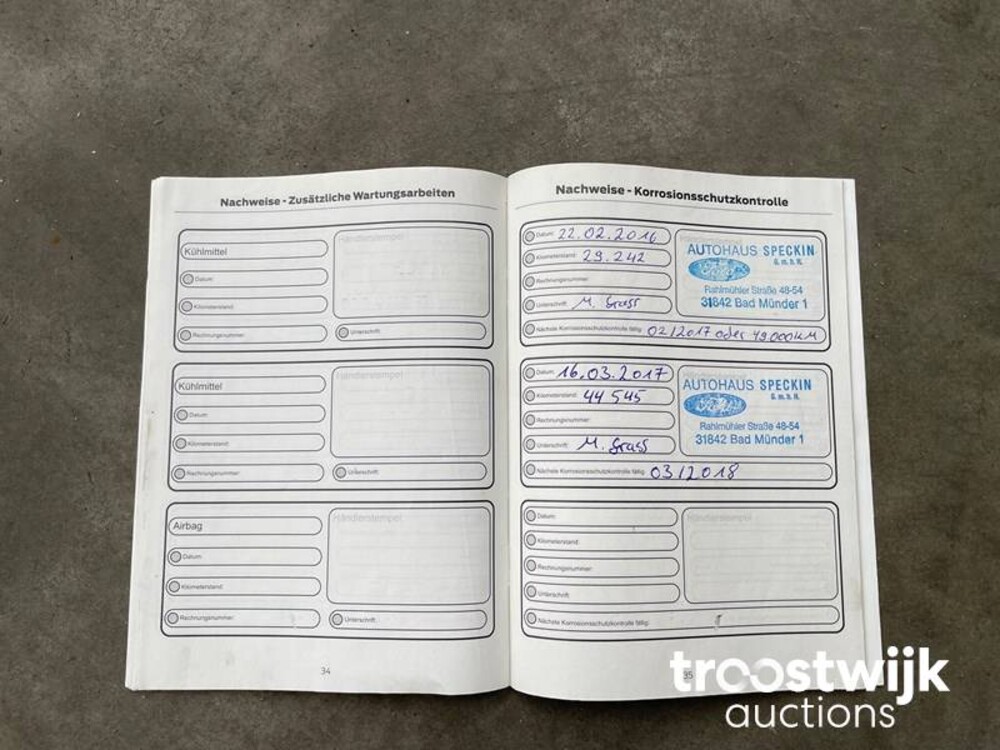 Nachweise - Zusätzliche Wartungsarbeiten
Kühlmittel
Händlerstempel
Datum:
Kilometerstand:
Rechnungsnummer:
Unterschrift:
Kühlmittel
Händlerstempel
Datum:
Kilometerstand:
Rechnungsnummer:
Unterschrift:
Airbag
Händlerstempel
Datum:
Kilometerstand:
Rechnungsnummer:
Unterschrift:
34
Nachweise - Korrosionsschutzkontrolle
Datum: 22.02.2016
Kilometerstand: 29.242
Rechnungsnummer:
Unterschrift: M. Grass
AUTOHAUS SPECKIN
G.m.b.H.
Ford
Rahlmühler Straße 48-54
31842 Bad Münder 1
Nächste Korrosionsschutzkontrolle fällig: 02/2017 oder 49.000KM
Datum: 16.03.2017
Kilometerstand: 44 545
Rechnungsnummer:
Unterschrift: M. Grass
AUTOHAUS SPECKIN
G.m.b.H.
Ford
Rahlmühler Straße 48-54
31842 Bad Münder 1
Nächste Korrosionsschutzkontrolle fällig: 03/2018
Datum:
Händlerstempel
Kilometerstand:
Rechnungsnummer:
Unterschrift:
Nächste Korrosionsschutzkontrolle fällig:
35
troostwijk
auctions